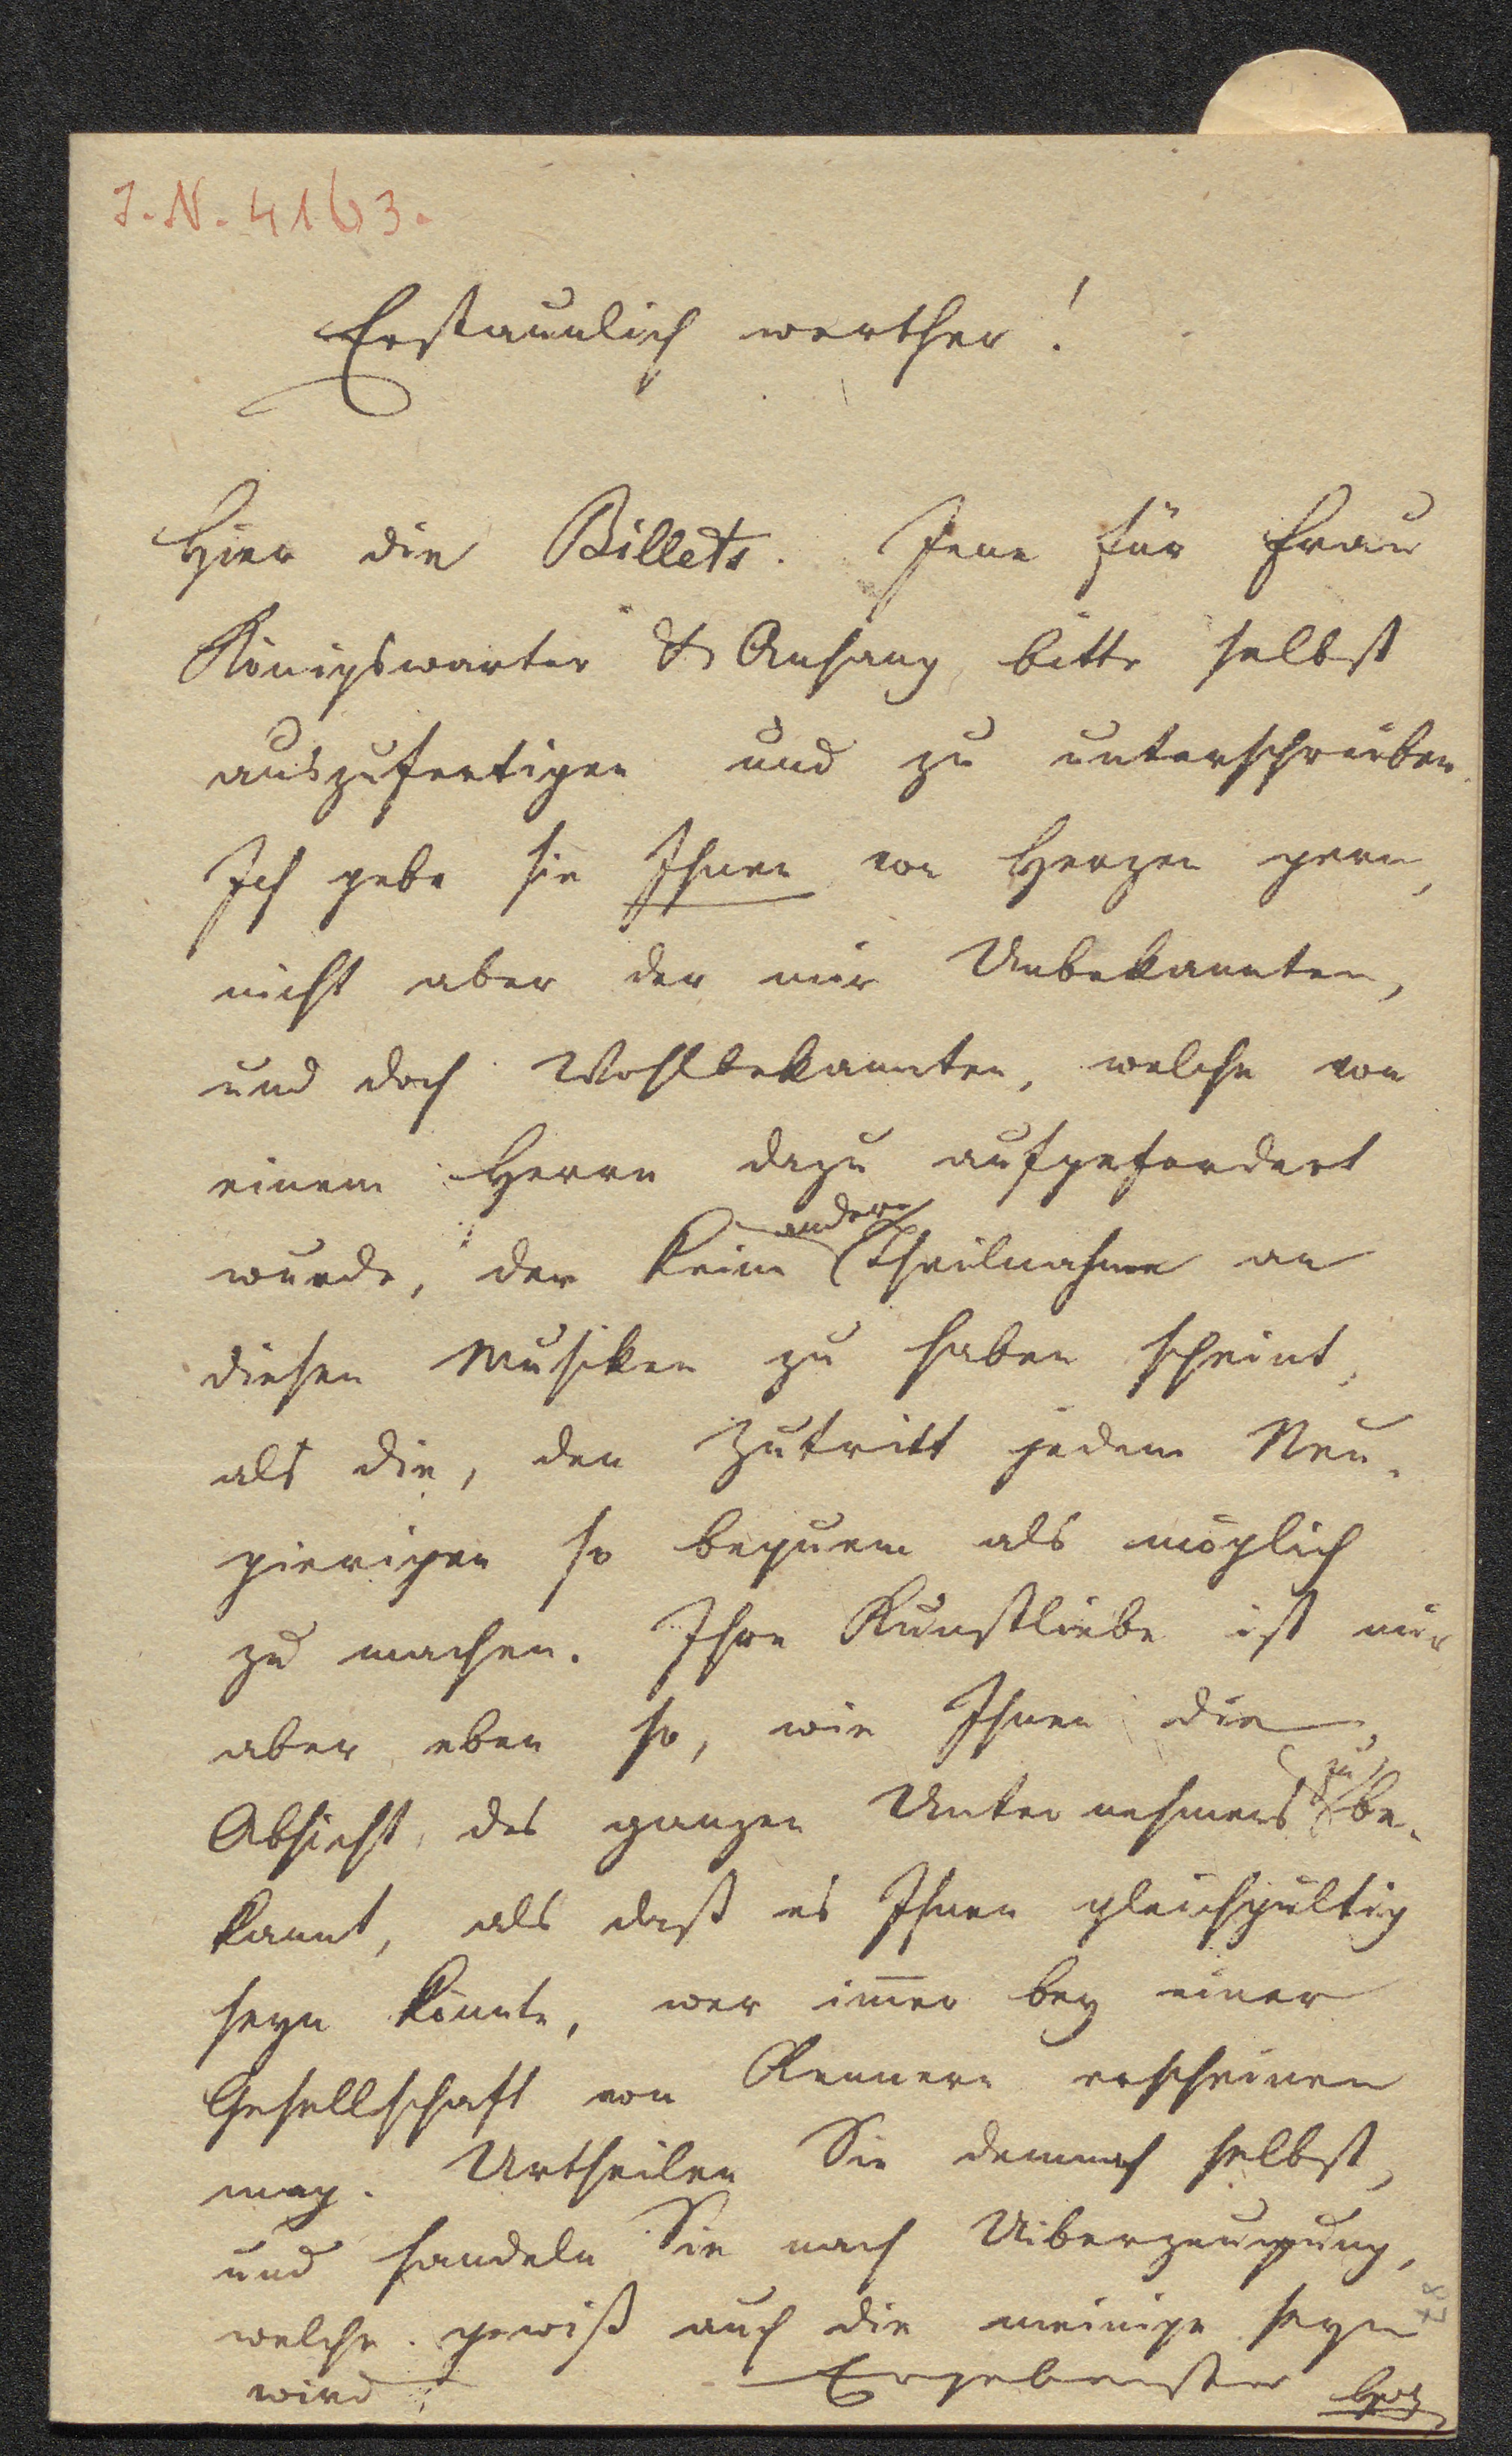 I. N. 4163.
Erstaunlich werther!
Hier die Billets. Jene für Frau
Königswarter & Anhang bitte selbst
auszufertigen und zu unterschreiben.
Ich gebe sie Ihnen von Herzen gern,
nicht aber der mir Unbekannten,
und doch Wohlbekannten, welche von
einem Herrn dazu aufgefordert
andere
wurde, der keine Theilnahme an
diesen Musiken zu haben scheint,
als die, den Zutritt jedem Neu-
gierigen so bequem als möglich
zu machen. Ihre Kunstliebe ist mir
aber eben so, wie Ihnen die
zu
Absicht des ganzen Unternehmens be-
kannt, als daß es Ihnen gleichgültig
seyn könnte, wer im̄er bey einer
Gesellschaft von Kennern erscheinen
mag. Urtheilen Sie demnach selbst,
und handeln Sie nach Uiberzeugung,
welche gewiß auch die meinige seyn
wird
Ergebenster Holz